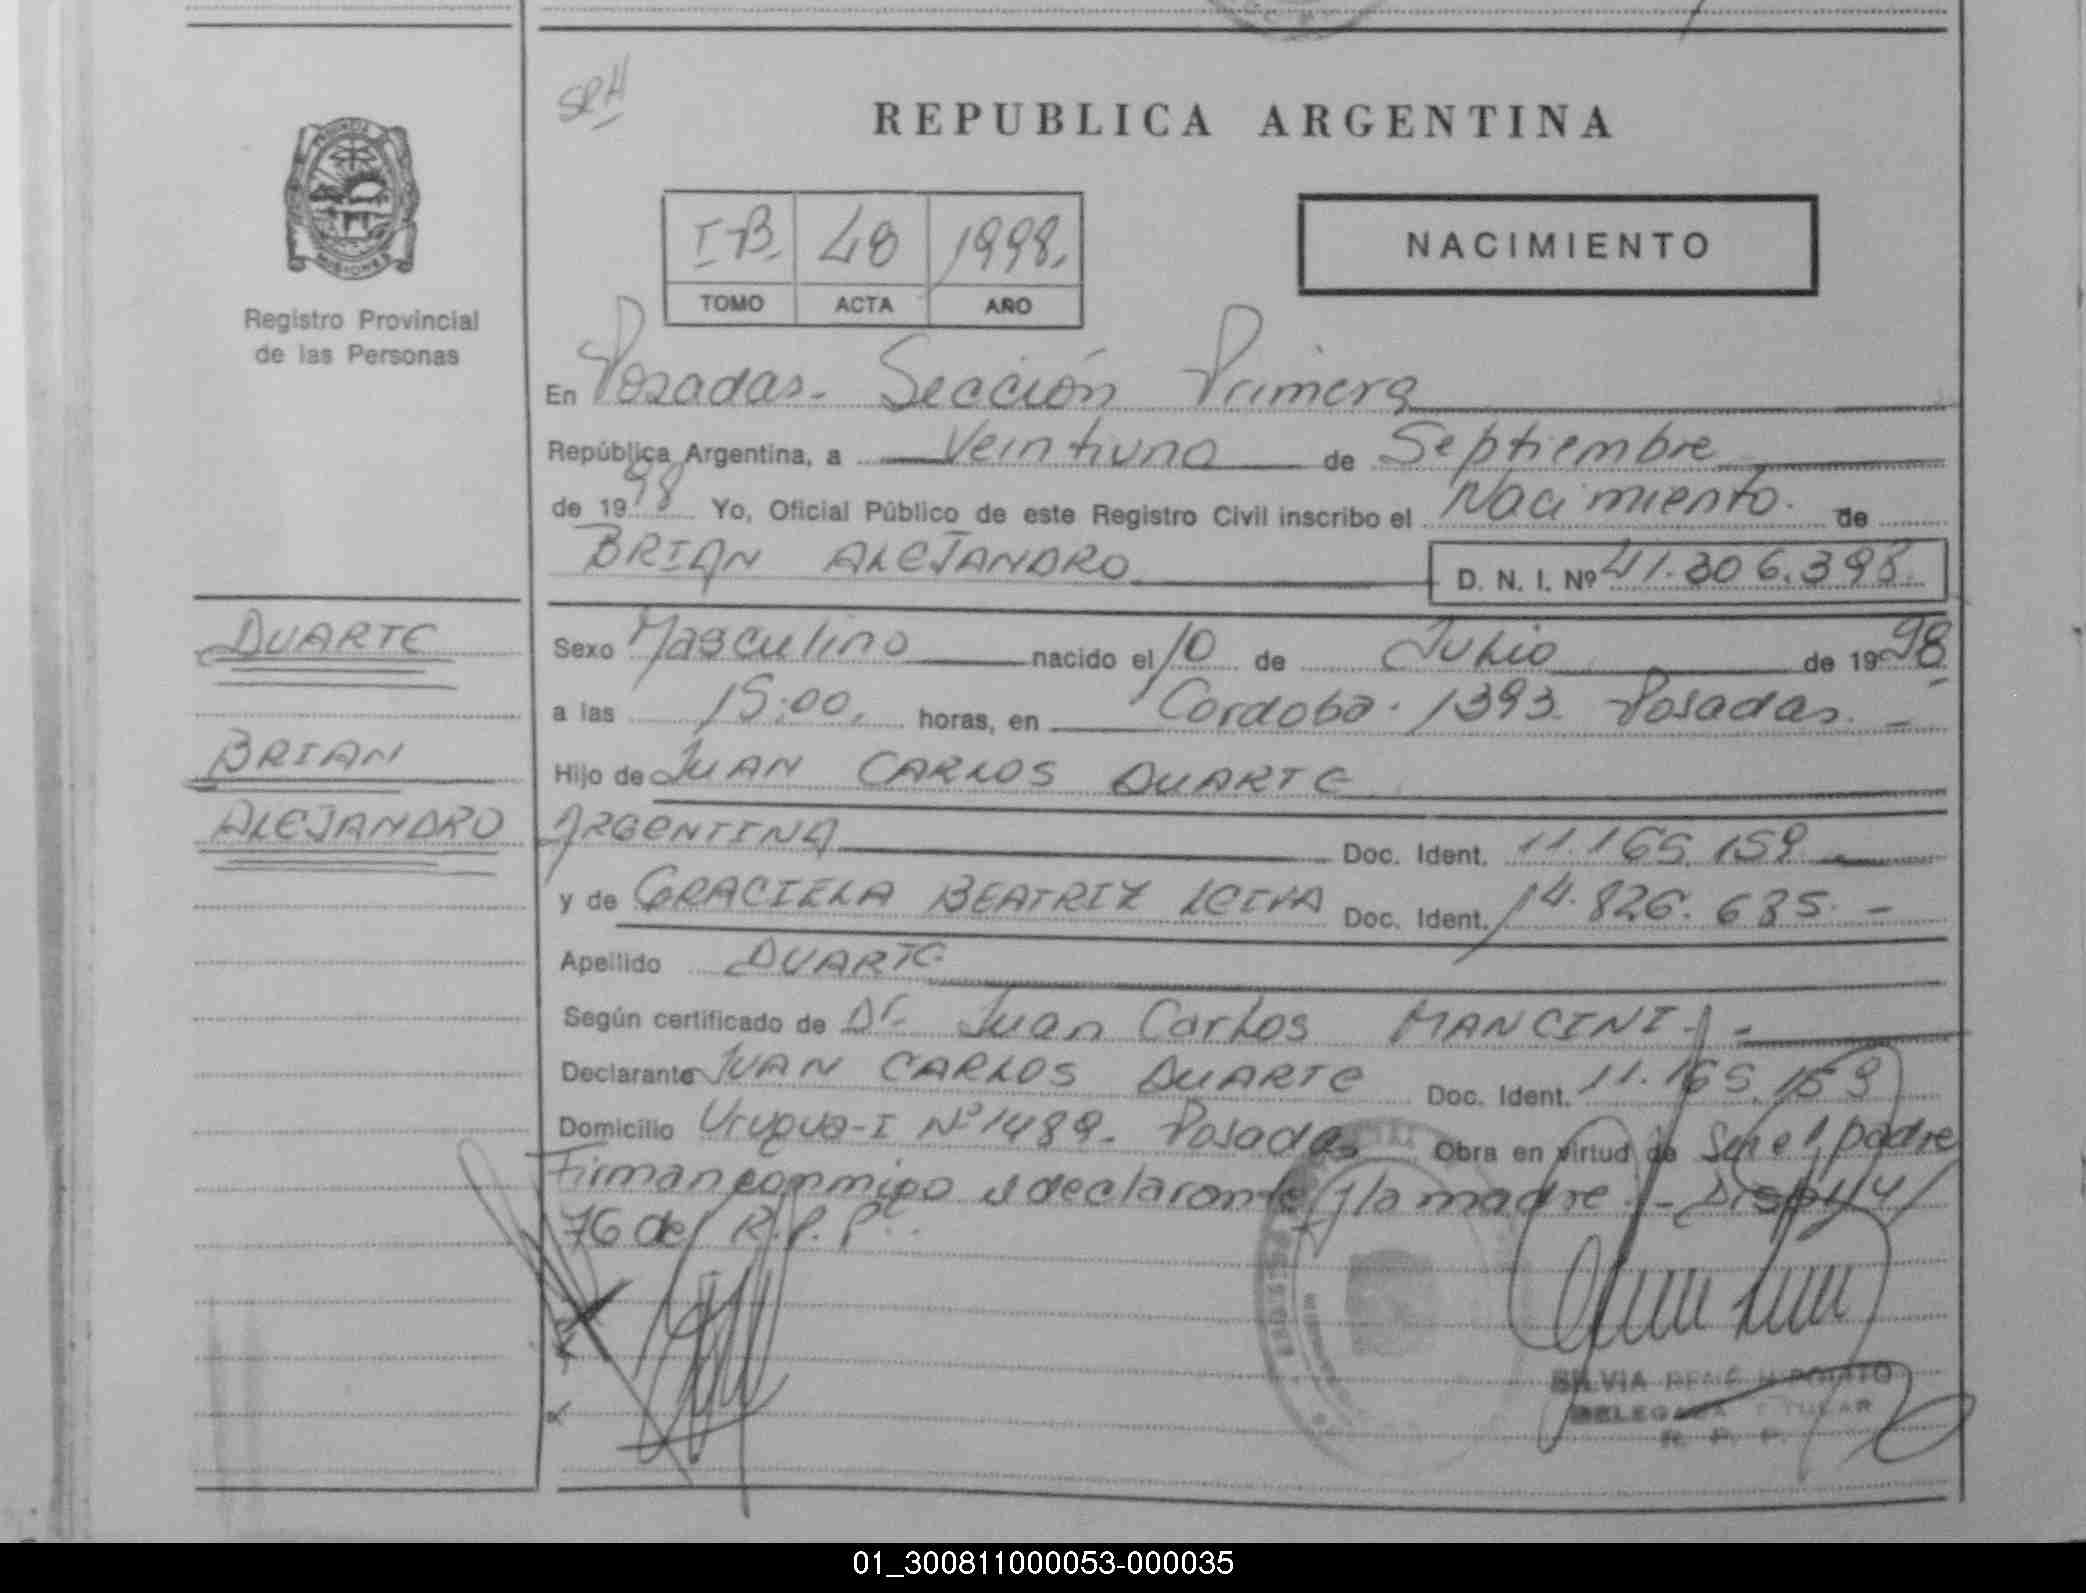 SRH
REPUBLICA ARGENTINA
MISIONES
Registro Provincial
de las Personas
I-B. 48 1998.
TOMO ACTA AÑO
NACIMIENTO
En Posadas. Sección Primera
República Argentina, a Veintiuno de Septiembre
de 1998 Yo, Oficial Público de este Registro Civil inscribo el Nacimiento. de
BRIAN ALEJANDRO D. N. I. Nº 41.306.398.
DUARTE
BRIAN
ALEJANDRO
Sexo Masculino nacido el 10 de Julio de 1998
a las 15:00. horas, en Cordoba. 1393. Posadas. -
Hijo de JUAN CARLOS DUARTE
ARGENTINA Doc. Ident. 11.165.159
y de GRACIELA BEATRIZ LEIVA Doc. Ident. 14.826.685. -
Apellido DUARTE
Según certificado de Dr. Juan Carlos MANCINI. -
Declarante JUAN CARLOS DUARTE Doc. Ident. 11.165.159
Domicilio Urugua-I Nº 1489. Posadas Obra en virtud de Ser el padre
Firman conmigo el declarante y la madre. - Disp. 14/
76 del R.P.P.
SILVIA RENÉ HIPOLITO
DELEGADA TITULAR
R. P. P.
01_300811000053-000035